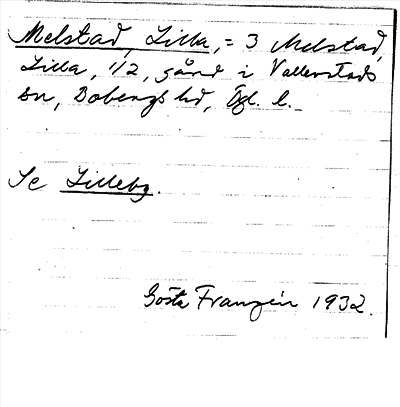 Melstad, Lilla, = 3 Melstad,
Lilla, 1/2, gård i Vallerstads
sn, Bobergs hd, Ögl. l.
Se Lilleby.
Gösta Franzén 1932.